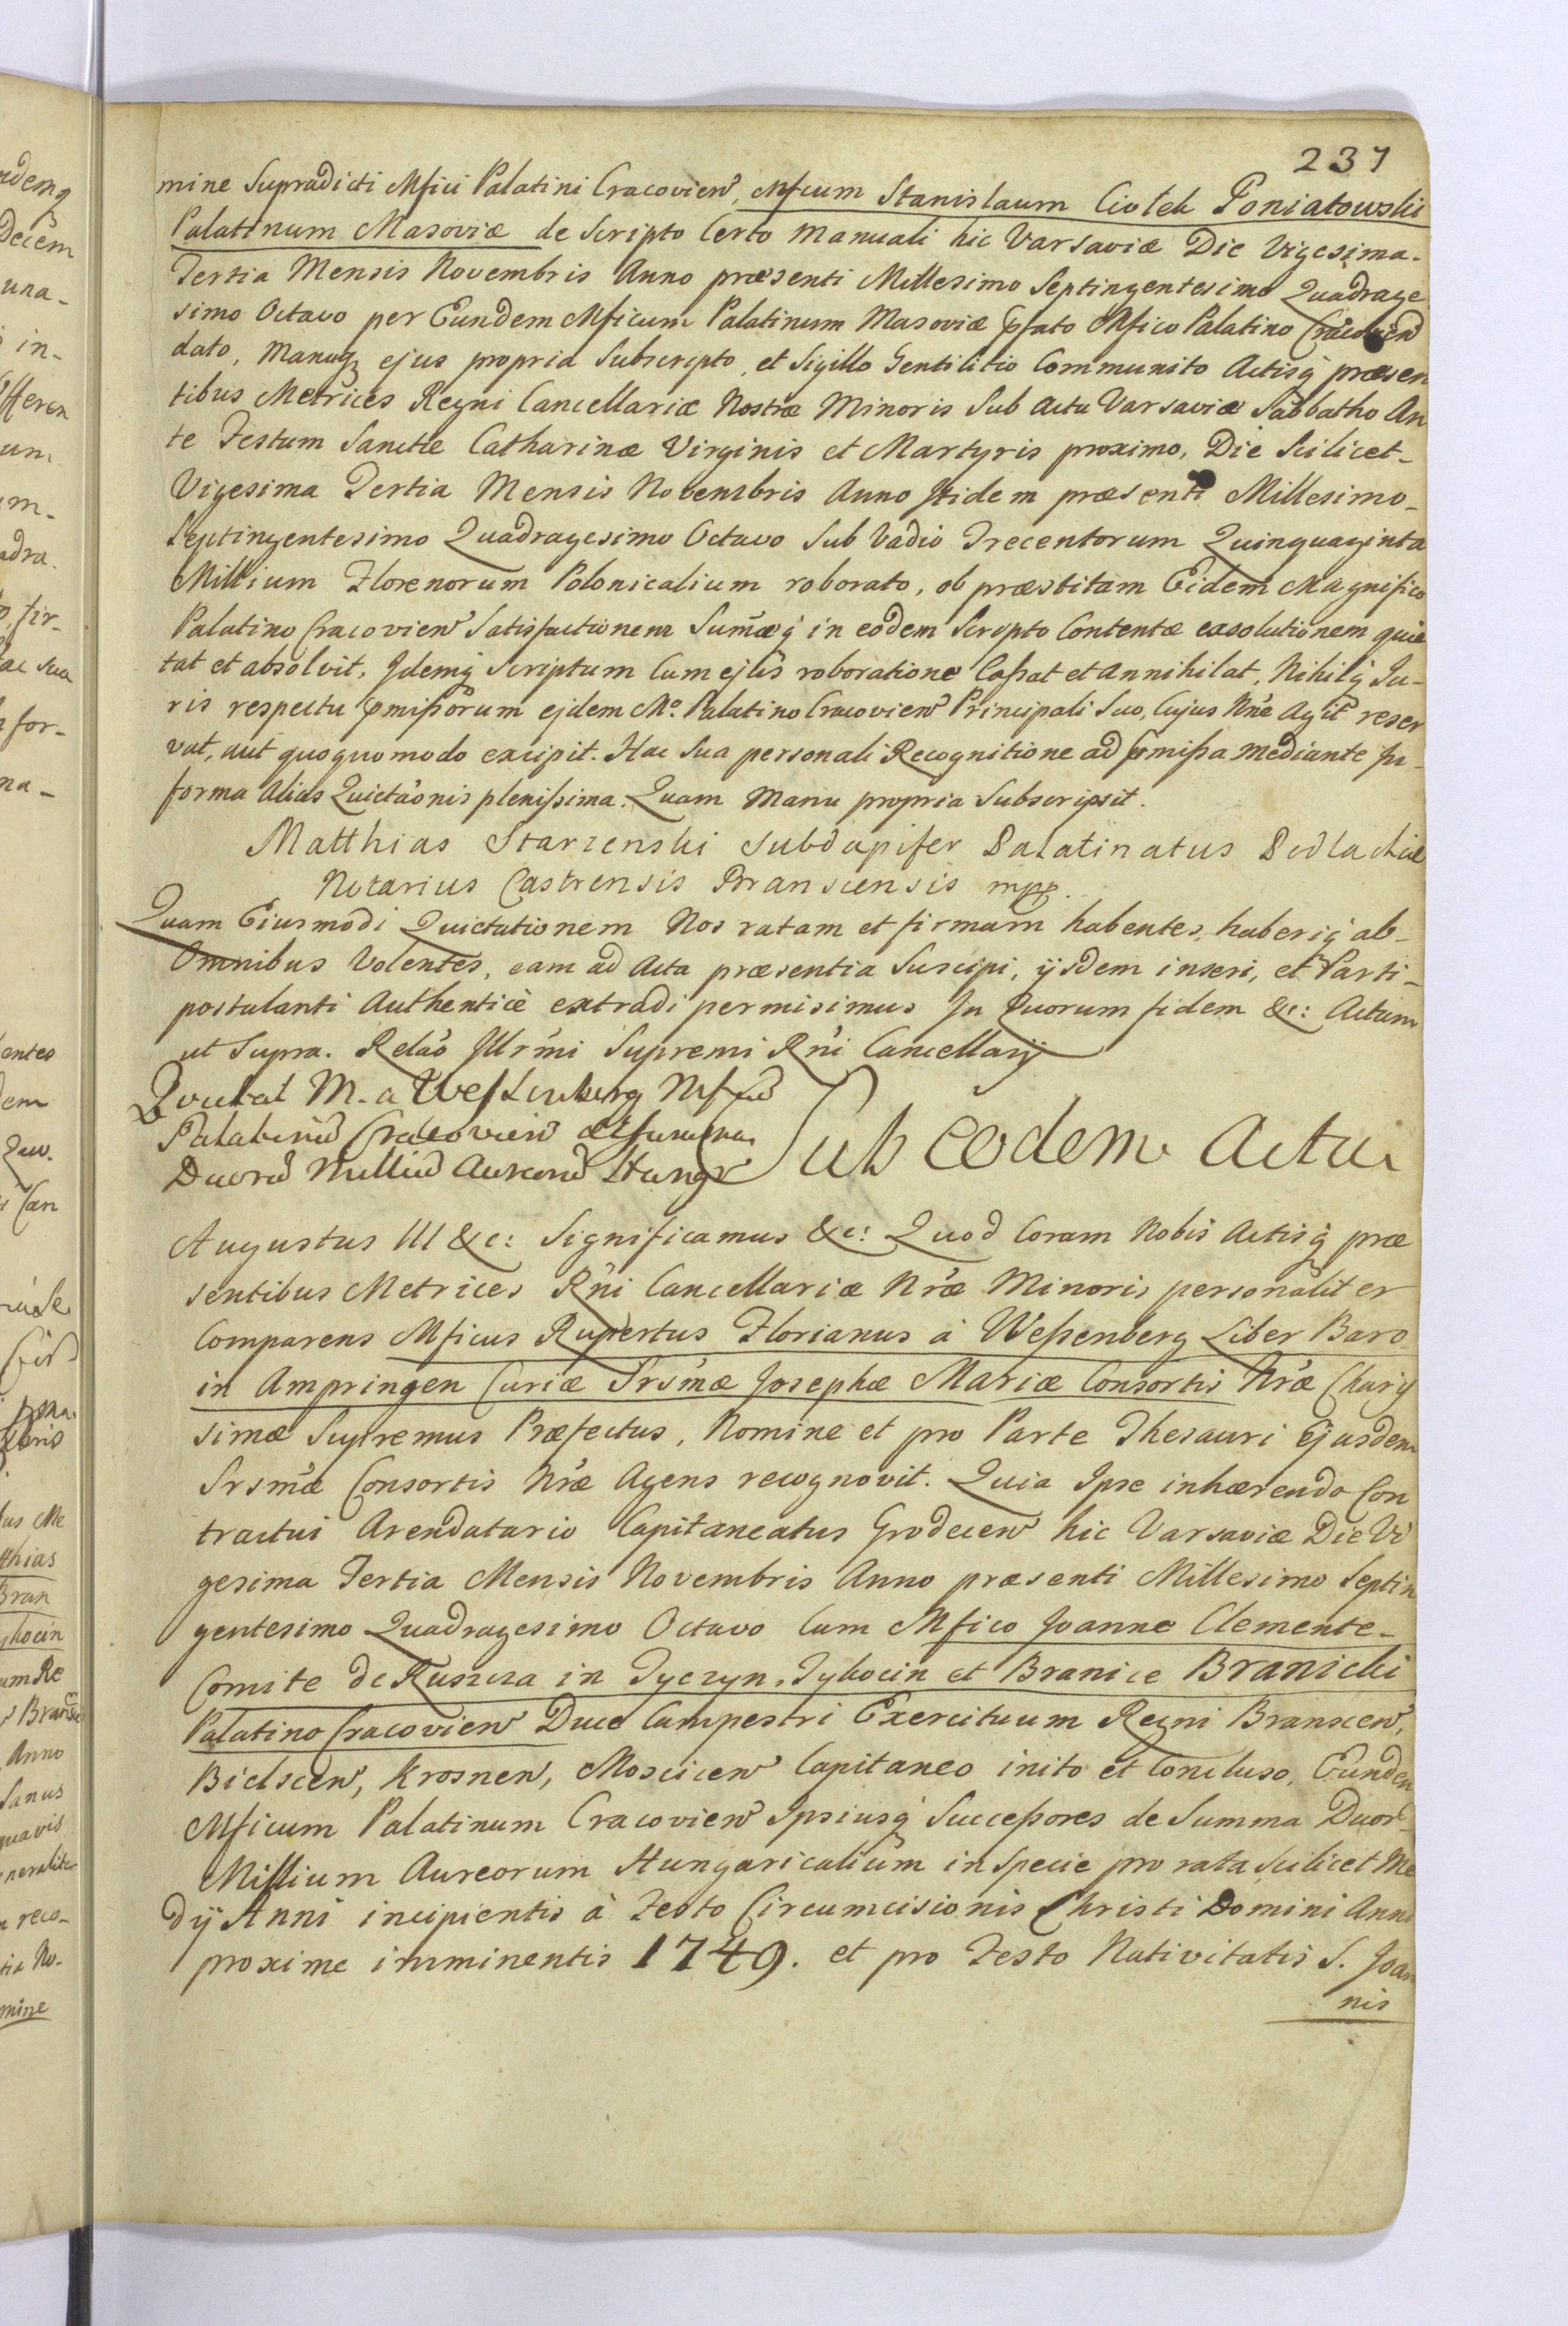 237
mine Supradicti Mfici Palatini Cracovien, Mfcum Stanislaum Ciołek Poniatowski
Palatinum Masoviæ de Scripto Certo Manuali hic Varsaviæ Die Vigesima-
Tertia Mensis Novembris Anno præsenti Millesimo Septingentesimo Quadrage
simo Octavo per Eundem Mficum Palatinum Masoviæ pfato Mfico Palatino Cracovien
dato, Manuq ejus propria Subscripto, et Sigillo Gentilitio Communito Actisq præsen
tibus Metrices Regni Cancellariæ Nostræ Minoris Sub Actu Varsaviæ Sabbatho An
te Festum Sanctæ Catharinæ Virginis et Martyris proximo, Die Scilicet-
Vigesima Tertia Mensis Novembris Anno itidem præsenti Millesimo-
Septingentesimo Quadragesimo Octavo Sub Vadio Trecentorum Quinquaginta
Millium Florenorum Polonicalium roborato, ob præstitam Eidem Magnifico
Palatino Cracovien Satisfactionem Sum̃æq in eodem Scripto Contentæ exsolutionem quie
tat et absolvit, Idemq Scriptum Cum ejus roboratione Cassat et Annihilat, Nihilq Ju-
ris respectu pmissorum ejdem Mo. Palatino Cracovien Principali Suo, Cujus Nne Agit reser
vat, aut quoquomodo excipit. Hac Sua personali Recognitione ad pmissa mediante In-
forma Alias Quictaonis plenissima. Quam Manu propria Subscripsit.
Matthias Starzenski Subdapifer Palatinatus Podlachiæ
Notarius Castrensis Branscensis mpp.
Quam Eiusmodi Quictationem Nos ratam et firmam habentes, haberiq ab-
Omnibus Volentes, eam ad Acta præsentia Suscipi, ijsdem inseri, et Parti-
postulanti Authenticè extradi permisimus In Quorum fidem &c: Actum
ut Supra. Relao Illrmi Supremi Rni Cancellarij
Quietat M. a Wessenberg Mfcd
Palatinu Cracovien de summa
Duoru Milliu Aureoru Hungr
Sub Eodem Actu
Augustus III &c: Significamus &c: Quod Coram Nobis Actisq præ
sentibus Metrices Rni Cancellariæ Nræ Minoris personaliter
Comparens Mficus Rupertus Florianus à Wessenberg Liber Baro
in Ampringen Curiæ Srsmæ Josephæ Mariæ Consortis Nræ Charis
simæ Supremus Præfectus, Nomine et pro Parte Thesauri Ejusdem
Srsmæ Consortis Nræ Agens recognovit. Quia Ipse inhærendo Con
tractui Arendatario Capitaneatus Grodecen hic Varsaviæ Die Vi
gesima Tertia Mensis Novembris Anno præsenti Millesimo Septin
gentesimo Quadragesimo Octavo Cum Mfico Joanne Clemente-
Comite de Ruszcza in Tyczyn, Tykocin et Branice Branicki
Palatino Cracovien Duce Campestri Exercituum Regni Branscen,
Bielscen, Krosnen, Moscicen Capitaneo inito et Concluso, Eundem
Mficum Palatinum Cracovien Ipsiusq Successores de Summa Duor
Millium Aureorum Hungaricalium in Specie pro rata Scilicet Me
dij Anni incipientis à Festo Circumcisionis Christi Domini Anni
proxime imminentis 1749. et pro Festo Nativitatis S. Joan
nis